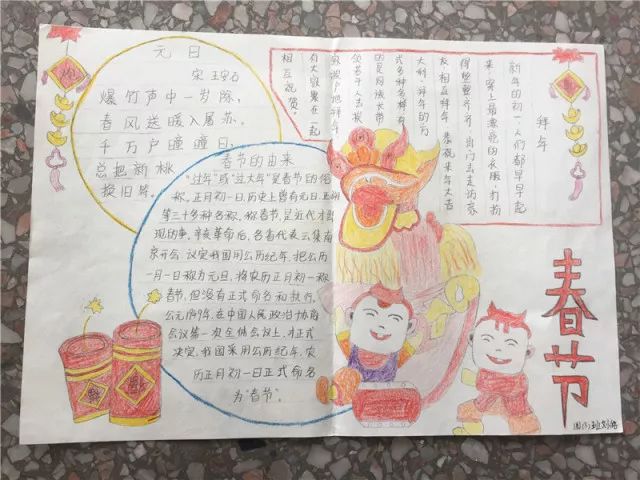 元日
宋 王安石
爆竹声中一岁除,
春风送暖入屠苏。
千万户曈曈日,
总把新桃
换旧符。
春节的由来
“过年”或“过大年”是春节的俗
称。正月初一日,历史上曾有元日、
等三十多种名称。称春节,是近代才出
现的事。辛亥革命后,各省代表云集南
京开会,议定我国用公历纪年,把公历
一月一日称为元旦,将农历正月初一称
春节,但没有正式命名和执行。
公元1949年,在中国人民政治协商
会议第一次全体会议上,才正式
决定,我国采用公历纪年,农
历正月初一日正式命名
为“春节”。
拜年
新年的初一,人们都早早起
来,穿上最漂亮的衣服,打扮
得整整齐齐,出门去走访亲
友,相互拜年,恭祝来年大吉
大利。拜年的方
式多种多样,有
的是同族长带
领若干人去挨
家挨户地拜年
有大家聚在一起
相互祝贺。
春节